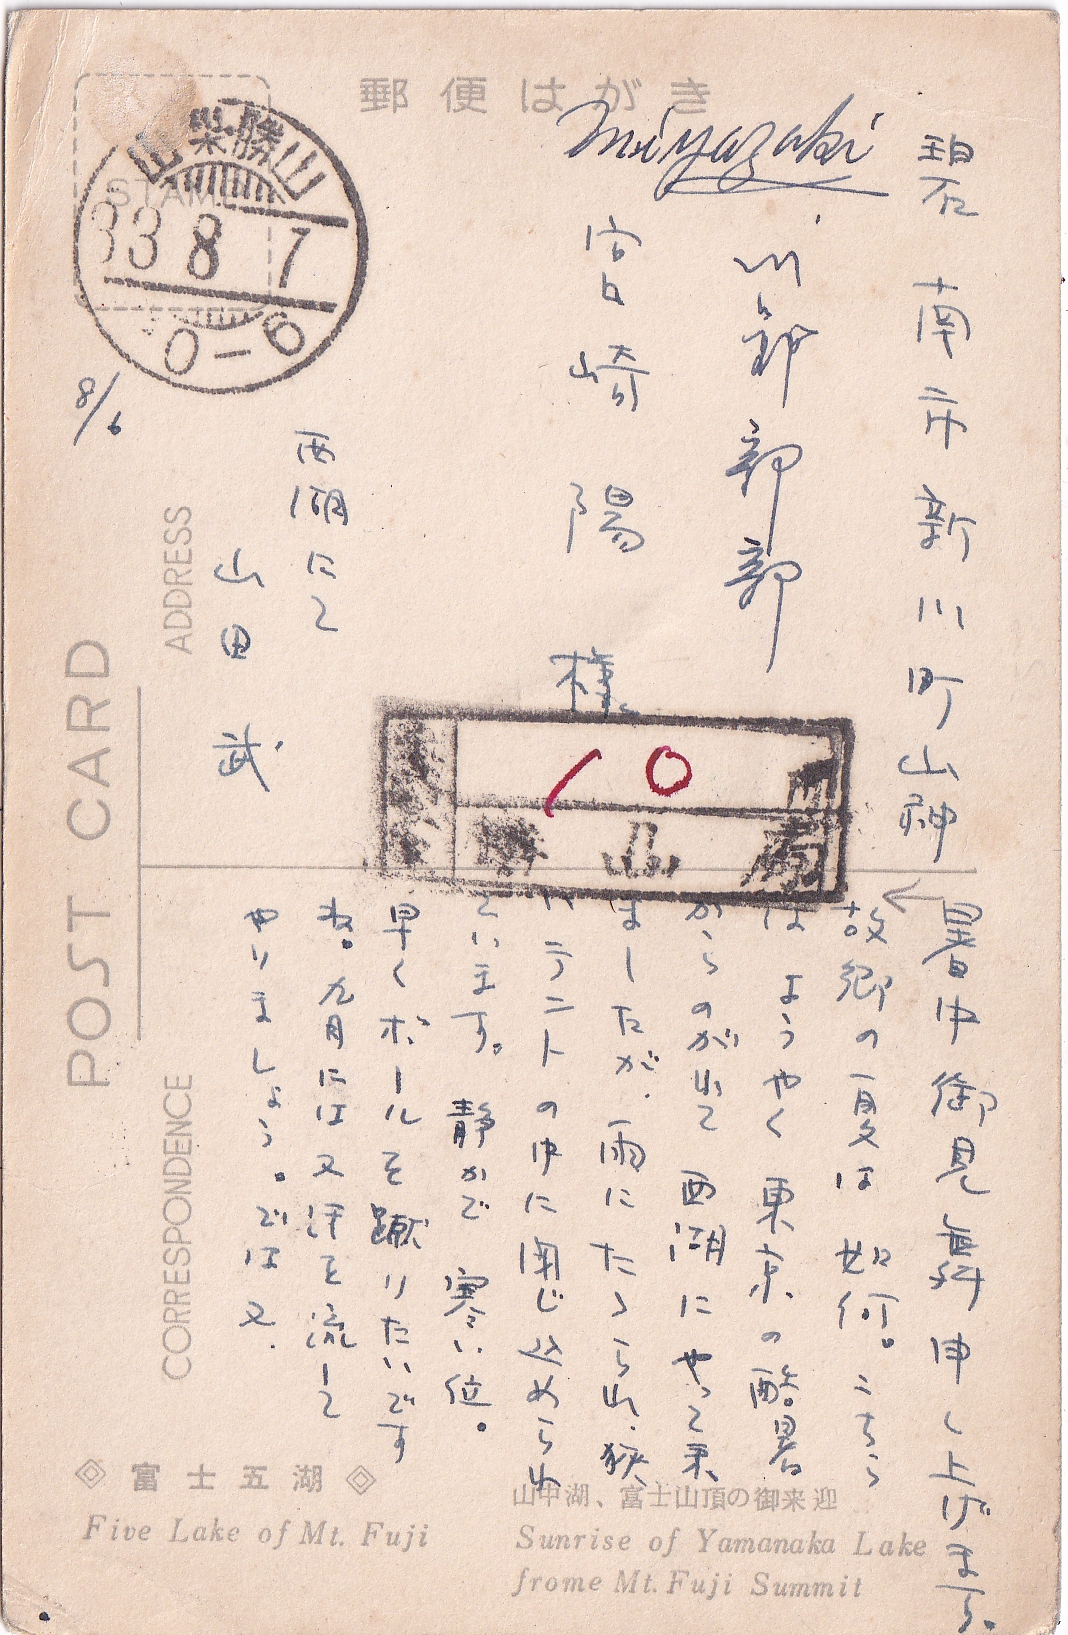 郵便はがき
Miyazaki
碧南市新川町山神
宮崎陽様
西湖にて
山田武
8/6
山梨・勝山
33 8 7
0-6
STAMP
POST CARD
ADDRESS
CORRESPONDENCE
10
暑中御見舞申し上げます。
故郷の夏は如何。こちら
はようやく東京の酷暑
からのがれて西湖にやって来
ましたが、雨にたゝられ、狭
いテントの中に閉じ込められ
ています。静かで寒い位。
早くボールを蹴りたいです
ね。九月には又汗を流して
やりましょう。では又.
◇富士五湖◇
Five Lake of Mt. Fuji
山中湖、富士山頂の御来迎
Sunrise of Yamanaka Lake
frome Mt. Fuji Summit